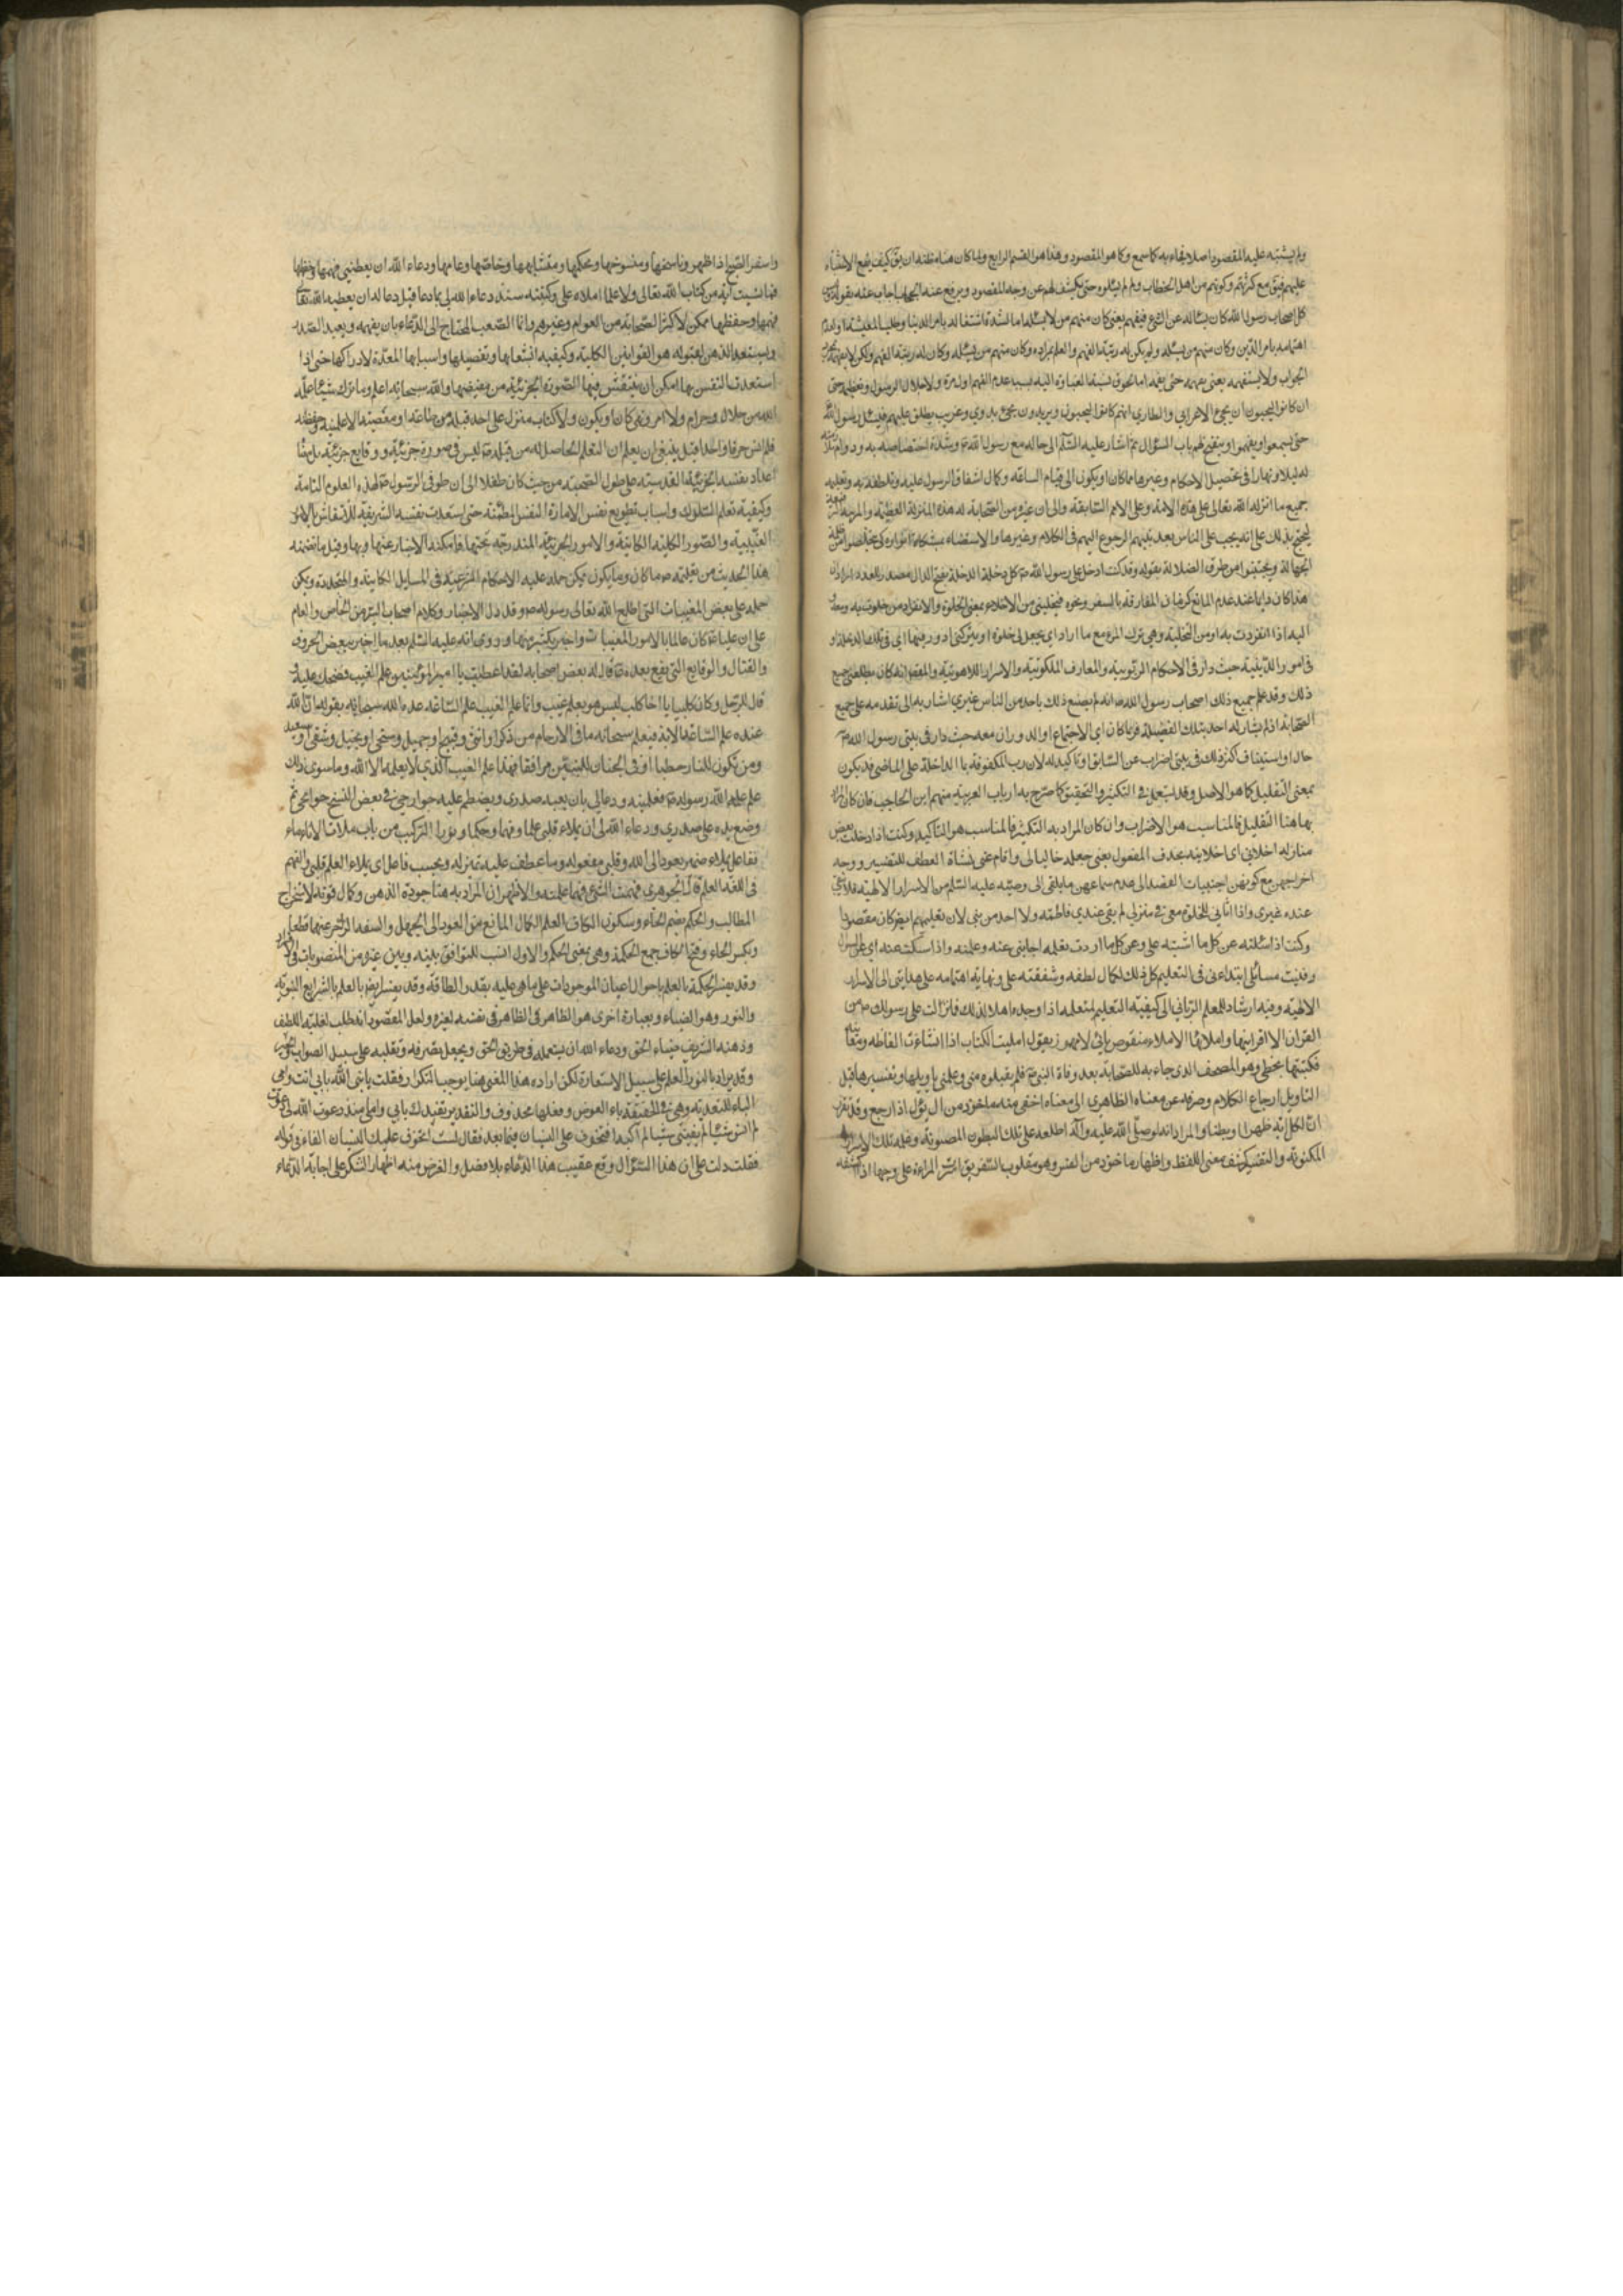 ولم يشتبه عليه المقصود اصلا فجاء به كما سمع وكما هو المقصود وهذا هو القسم الرابع ولما كان هنا مظنة ان يق كيف يقع الاشتباه
عليهم مع كثرتهم وكونهم من اهل الخطاب ولم لم يسئلوه حتى يكشف لهم عن وجه المقصود ويرفع عنه الحجاب اجاب عنه بقوله وليس
كل اصحاب رسول الله كان يسئله عن الشئ فيفهم يعنى كان منهم من لا يسئله اما لشدة اشتغاله بامر الدنيا وطلب المعيشة او لعدم
اهتمامه بامر الدين وكان منهم من يسئله ولم يكن له رتبة الفهم والعلم بمراده وكان منهم من يسئله وكان له رتبة الفهم ولكن لا يفهمه
الجواب ولا يستفهمه يعنى يفهمه حتى يفهمه اما لخوف نسبة الغباوة اليه بسبب عدم الفهم اول مرة ولاجلال الرسول وتعظيمه حتى
ان كانوا ليحبون ان يجئ الاعرابى والطارى انهم كانوا ليحبون ويريدون مجئ بدوى وغريب يطلق عليهم فيسئل رسول الله
حتى يسمعوا ويفهموا وينفتح لهم باب السؤال ثم اشار عليه السّلم الى حاله مع رسول الله ص وشدة اختصاصه به ودوام
له ليلا ونهارا فى تحصيل الاحكام وغيرها مما كان او يكون الى قيام الساعة وكمال اشفاق الرسول عليه وتلطفه به وتعليمه
جميع ما انزله الله تعالى على هذه الامة وعلى الامم السابقة والى ان غيره من الصحابة له هذه المنزلة العظيمة والمرتبة
ليحتج بذلك على انه يجب على الناس بعد نبيهم الرجوع اليهم فى الكلام وغيرها والاستضاءة بمشكاة انواره كى يتخلصوا من
الجهالة ويجتنبوا من طرق الضلالة بقوله وقد كنت ادخل على رسول الله ص كل دخلة الدخلة بفتح الدال مصدر للعدد
هذا كان دايما عند عدم المانع كزمان المفارقة بالسفر ونحوه فيخلينى من الاخلاء بمعنى الخلوة والانفراد من خلوت به ومعه
اليه اذا انفردت به او من التخلية وهى ترك المرء مع ما اراد اى يجعل لى خلوة او يتركنى ادور فيها اى فى تلك الدخلة
فى امور الدينية حيث دار فى الاحكام الربوبية والمعارف الملكوتية والاسرار اللاهوتية والمقص انه كان يطلعنى جميع
ذلك وقد علم جميع ذلك اصحاب رسول الله ص انه لم يصنع ذلك باحد من الناس غيرى اشار به الى تقدمه على جميع
الصحابة اذ لم يشاركه احد بتلك الفضيلة فربما كان اى الاجتماع او الدوران معه حيث دار فى بيتى رسول الله ص
حال او استيناف اكثر ذلك فى بيتى اضراب عن السّابق او تاكيد له لان رب المكفوفة بما الداخلة على الماضى قد يكون
بمعنى التقليل كما هو الاصل وقد يستعمل فى التكثير والتحقيق كما صرّح به ارباب العربية منهم ابن الحاجب فان كان المراد
بها هنا التقليل فالمناسب هو الاضراب وان كان المراد به التكثير فالمناسب هو التأكيد وكنت اذا دخلت بعض
منازله اخلانى اى اخلا بيته بحذف المفعول يعنى جعله خاليا لى واقام عنى نسائه العطف للتفسير ووجه
اخراجهن مع كونهن اجنبيات القصد الى عدم سماعهن ما يلقى الى وصيّه عليه السّلم من الاسرار الالهية فلا يبقى
عنده غيرى واذا اتانى للخلوة معى فى منزلى لم يقم عندى فاطمة ولا احد من بنى لان تعليمهم ايضا كان مقصودا
وكنت اذا سئلته عن كل ما اشتبه على وعن كل ما اردت تعلمه اجابنى عنه وعلمنه واذا سكت عنه اى
وفنيت مسائلى ابتدءنى فى التعليم كل ذلك لكمال لطفه وشفقته على ونهاية اهتمامه على هدايتى الى الاسرار
الالهية وفيه ارشاد للمعلم الربانى الى كيفية التعليم لمتعلمه اذا وجده اهلا لذلك فما نزلت على رسول الله ص من
القران الا اقرانيها واملاها الاملاء منقوص يائى لا مهموز يقول امليت الكتاب اذا انشاءت الفاظه
فكتبتها بخطى وهو المصحف الذى جاء به للصحابة بعد وفاة النبى ص فلم يقبلوه منى وعلمنى تاويلها وتفسيرها قيل
التاويل ارجاع الكلام وصرفه عن معناه الظاهرى الى معناه اخفى منه ماخوذ من ال يؤل اذا رجع وقد
ان لكل اية ظهرا وبطنا والمراد انه صلى الله عليه وآله اطلعه على تلك البطون المصونة وعلمه تلك الاسرار
المكنونة والتفسير كشف معنى اللفظ واظهاره ماخوذ من الفسر وهو مقلوب السفر يق اسفرت المراءة على وجهها اذا كشفه
واسفر الصّبح اذا ظهر وناسخها ومنسوخها ومحكمها ومتشابهها وخاصها وعامها ودعاء الله ان يعطينى فهمها وحفظها
فما نسيت اية من كتاب الله تعالى ولا علما املاه على وكتبته منذ دعاء الله لى بما دعا قيل دعا له ان يعطيه الله تعا
فهمها وحفظها ممكن لاكثر الصحابة من العوام وغيرهم وانما الصّعب المحتاج الى الدعاء بان يفهمه ويعيه الصّدر
ويستعد الذهن لقبوله هو القوانين الكلية وكيفيه انشعابها وتفصيلها واسبابها المعدّة لادراكها حتى اذا
استعدت النفس بها امكن ان ينتقش فيها الصّورة الجزئية من مفيضها والله سبحانه اعلم وما ترك شيئا علّمه
الله من حلال وحرام ولا امر ونهى كان او يكون ولا كتاب منزل على احد قبله من طاعة او معصية الا علمنيه وحفظه
فلم انس حرفا واحدا قيل ينبغى ان يعلم ان التعلم الحاصل له من قبله ص ليس فى صورة جزئية ووقايع جزئية بل
اعداد نفسه الجزئية القدسيّة على طول الصّحبة من حيث كان طفلا الى ان طوفى الرّسول ص لهذه العلوم التامة
وكيفية تعلم السّلوك واسباب تطويع نفس الامارة النفس المطمئنة حتى استعدت نفسه الشريفة للانتقاش بالامور
الغيبية والصّور الكلية الكاينة والامور الجزئية المندرجة تحتها فامكنه الاخبار عنها وبها وقيل ما تضمنه
هذا الحديث من تعليمه ص ما كان وما يكون يمكن حمله عليه الاحكام الشرعيّة فى المسايل الكاينة والمتجددة ويمكن
حمله على بعض المغيبات التى اطلع الله تعالى رسوله ص وقد دل الاخبار وكلام اصحاب السّير من الخاص والعام
على ان عليا ع كان عالما بالامور المغيبات واخبر بكثير منها وروى انه عليه السّلم بعد ما اخبر ببعض الحروب
والقتال والوقايع التى يقع بعده ع قال له بعض اصحابه لقد اعطيت يا امير المؤمنين علم الغيب فضحك عليه
قال للرّجل وكان كلبيا يا اخا كلب ليس هو بعلم غيب وانما علم الغيب علم الساعة عدده الله سبحانه بقوله ان الله
عنده علم الساعة الاية فيعلم سبحانه ما فى الارحام من ذكر او انثى وقبيح او جميل وسخى او بخيل وشقى او سعيد
ومن يكون للنار حطبا او فى الجنان للنبيّين مرافقا فهذا علم الغيب الذى لا يعلمه الا الله وما سوى ذلك
علم علمه الله رسوله ص فعلمنيه ودعا لى بان يعيه صدرى ويضطم عليه جوارحى فى بعض النسخ جوانحى ثم
وضع يده على صدرى ودعاء الله لى ان يملاء قلبى علما وفهما وحكما ونورا التركيب من باب ملات الاناء ماء
ففاعل يملاء ضمير يعود الى الله وقلبى مفعوله وما عطف عليه تميز له وبحسب فاعل اى يملاء العلم قلبى والفهم
فى اللغة العلم قال الجوهرى فهمت الشئ فهما علمته والاظهر ان المراد به هنا جودة الذهن وكمال قوته لاستخراج
المطالب والحكم بضم الحاء وسكون الكاف العلم الكمال المانع من العود الى الجهل والسفه المرء عنهما قطعا
وبكسر الحاء وفتح الكاف جمع الحكمة وهى بمعنى الحكم والاول انسب للتوافق بينه وبين غيره من المنصوبات فى الافراد
وقد يفسر الحكمة بالعلم باحوال اعيان الموجودات على ما هى عليه بقدر الطاقة وقد يفسر ايضا بالعلم بالشرايع النبويّة
والنور وهو الضياء وبعبارة اخرى هو الظاهر فى نفسه المظهر لغيره ولعل المقصود انه طلب لغلبة اللطف
وذهنه الشريف ضياء الحق ودعاء الله ان يستعمله فى طريق الحق ويجعل تصرفه وتقلبه على سبيل الصواب والخير
وقد يراد بالنور العلم على سبيل الاستعارة لكن ارادة هذا المعنى هنا يوجب التكرار فقلت يا نبى الله بابى انت وامى
الباء للتعدية وهى فى الحقيقة باء العوض وفعلها محذوف والتقدير نفديك بابى وامى منذ دعوت الله لى بما دعوت
لم انس شيئا لم يفتنى شيئا لم اكتبه افتخوف على النسيان فيما بعد فقال لست اتخوف عليك النسيان الفاء فى قوله
فقلت دلت على ان هذا السؤال وقع عقيب هذا الدّعاء بلا فصل والغرض منه اظهار الشكر على اجابة الدّعاء